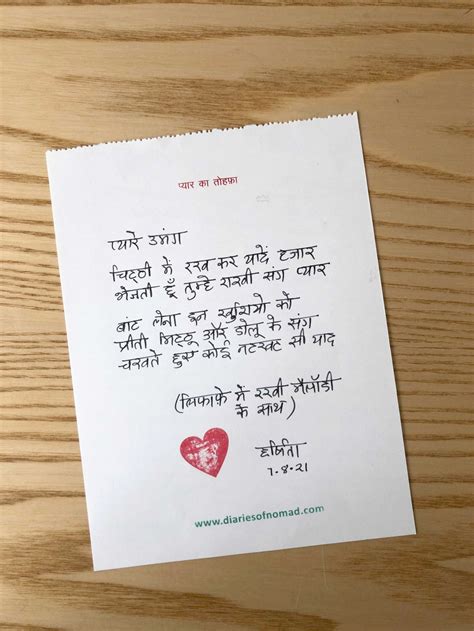 प्यार का तोहफ़ा
प्यारे उमंग
चिट्ठी में रख कर यादें हजार
भेजती हूँ तुम्हे राखी संग प्यार
बांट लेना इन खुशियो को
प्रीती मिट्ठू और डोलू के संग
चखते हुए कोई नटखट सी याद
(लिफाफे में रखी मैलॉडी
के साथ)
हर्षिता
7.8.21
www.diariesofnomad.com